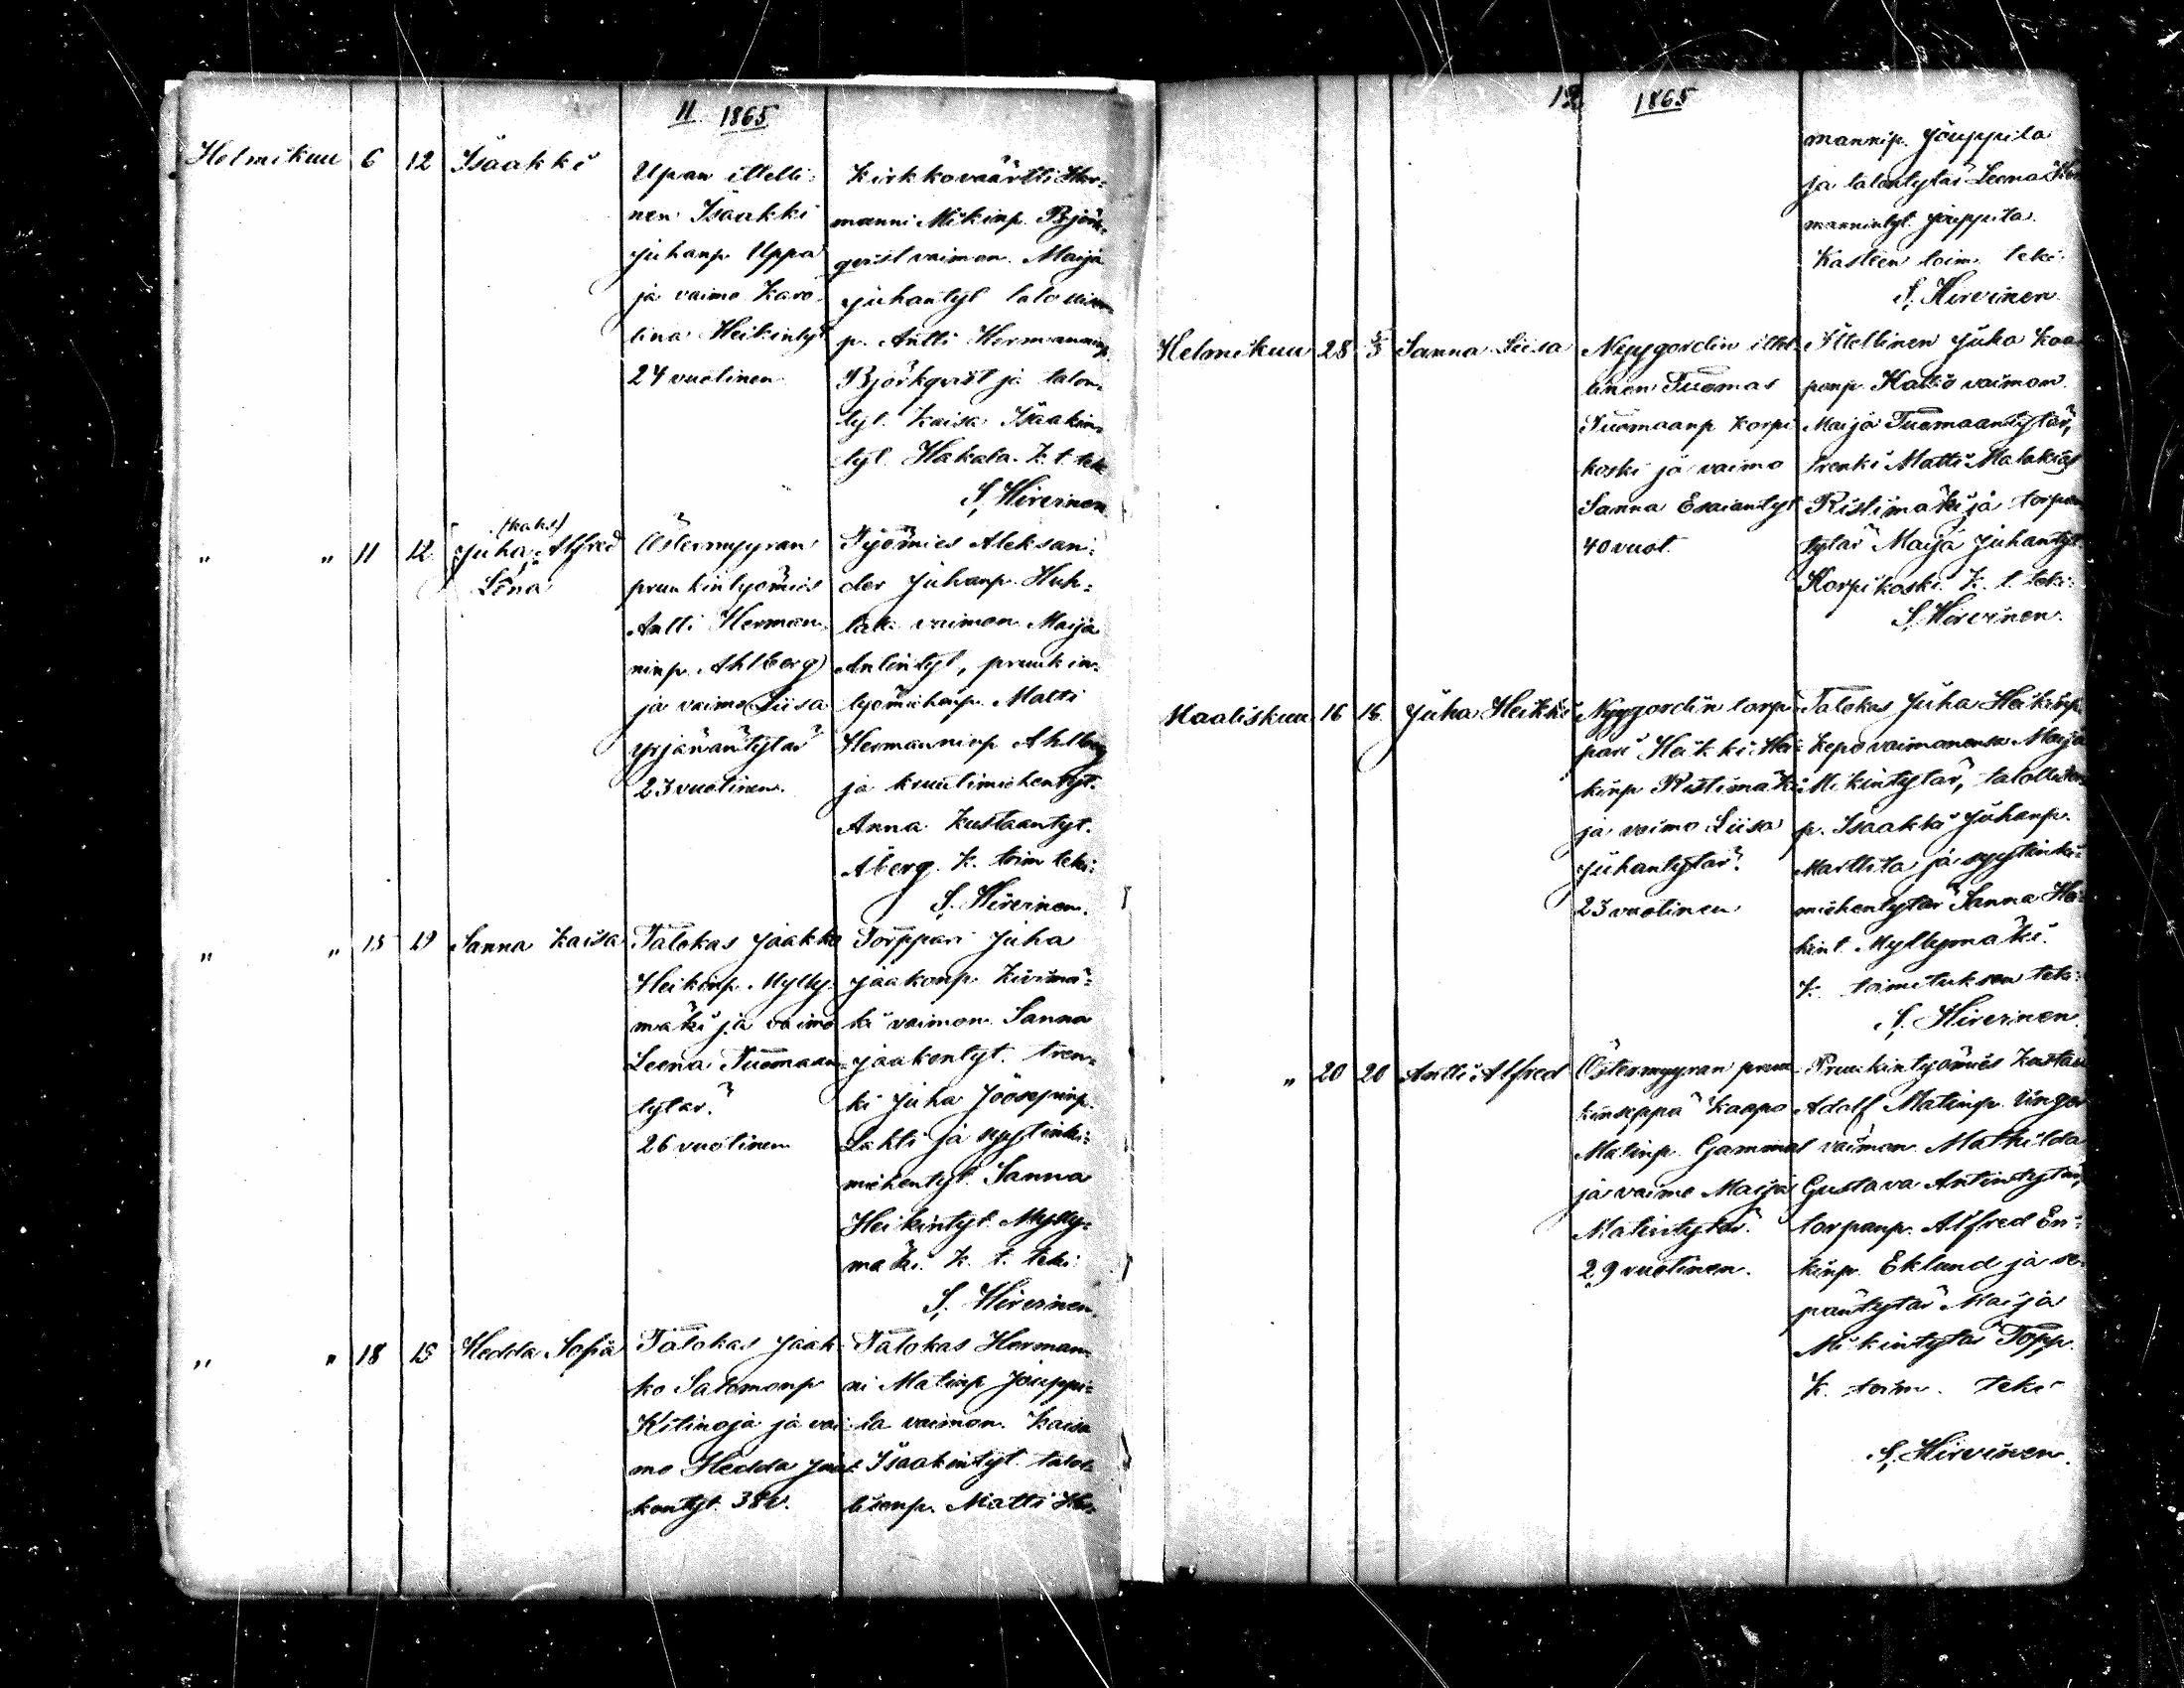 11. 1865
Helmikuu 6 12 Isaakki
Upan itelli-
nen Isaakki
Juhanp. Uppa
ja vaimo Karo-
lina Heikintyt
24 vuotinen.
Kirkkoväärtti Her-
manni Mikinp. Björk-
qvist vaimon. Maija
Juhantyt
p. Antti Hermanninp
Björkqvist ja talon-
tyt. Kaisa Isaakin-
tyt. Hakala. K. t. teki
S. Hirvinen
" " 11 12 (kaks)
Juha Alfred
Lena
Östermyyran
pruukintyömies
Antti Herman-
ninp. Ahlberg
ja vaimo Liisa
Yrjänäntytär
23 vuotinen.
Työmies Aleksan-
der Juhanp. Huh-
tak. vaimon Maija
Antintyt, pruukin-
työmiehenp. Matti
Hermanninp Ahlberg
ja kruutimiehentyt.
Anna Kustaantyt.
Åberg. K. toim teki:
S. Hirvinen.
" " 15 19 Sanna Kaisa
Talokas Jaakko
Heikinp. Mylly-
mäki ja vaimo
Leena Tuomaan-
tytär.
26 vuotinen
Torppari Juha
Jaakonp. Kivimä-
ki vaimon. Sanna
Jaakontyt. tren-
ki Juha Jöösepinp.
Lahti ja syytinki-
miehentyt. Sanna
Heikintyt. Mylly-
mäki. K. t. teki:
S. Hirvinen.
" " 18 19 Hedda Sofia
Talokas Jaak-
ko Salomonp
Kitinoja ja vai-
mo Hedda Jaak-
kontyt. 38 v.
Talokas Herman-
ni Matinp Jouppi-
la vaimon. Kaisa
Isaakintyt. talol-
lisenp. Matti Her-
12 1865
mannip. Jouppila
ja talontytär Leena Her
mannintyt. Jouppila.
Kasteen toim. teki:
S. Hirvinen.
Helmikuu 28 5/3 Sanna Liisa
Nyygordin itel-
linen Tuomas
Tuomaanp Korpi
koski ja vaimo
Sanna Esaiantyt
40 vuot.
Itellinen Juha Kaa-
ponp. Kattö vaimon
Maija Tuomaantytär,
trenki Matti Malakias
Ristimäki ja torpan
tytär Maija Juhantyt.
Korpikoski. K. t. teki:
S. Hirvinen.
Maaliskuu 16 18. Juha Heikki
Nyygordin torp-
pari Heikki Hei-
kinp Ristimäki
ja vaimo Liisa
Juhantytär.
23 vuotinen
Talokas Juha Heikinp.
Kepo vaimonensa Maija
Mikintytär, talollisen
p. Isaakki Juhanp.
Marttila ja syytinki-
miehentytär Sanna Hei-
kint. Myllymäki.
K. toimituksen teki:
S. Hirvinen.
" 20 20 Antti Alfred
Östermyyran pruu-
kinseppä Kaapo
Matinp. Gammal
ja vaimo Maija
Matintytär.
29 vuotinen.
Pruukintyömies Kustaa
Adolf Matinp. Unger
vaimon. Mathilda
Gustava Antintytär,
torpanp. Alfred Eri-
kinp. Eklund ja se-
päntytär Maija
Mikintytär Topp.
K. toim. teki
S. Hirvinen.